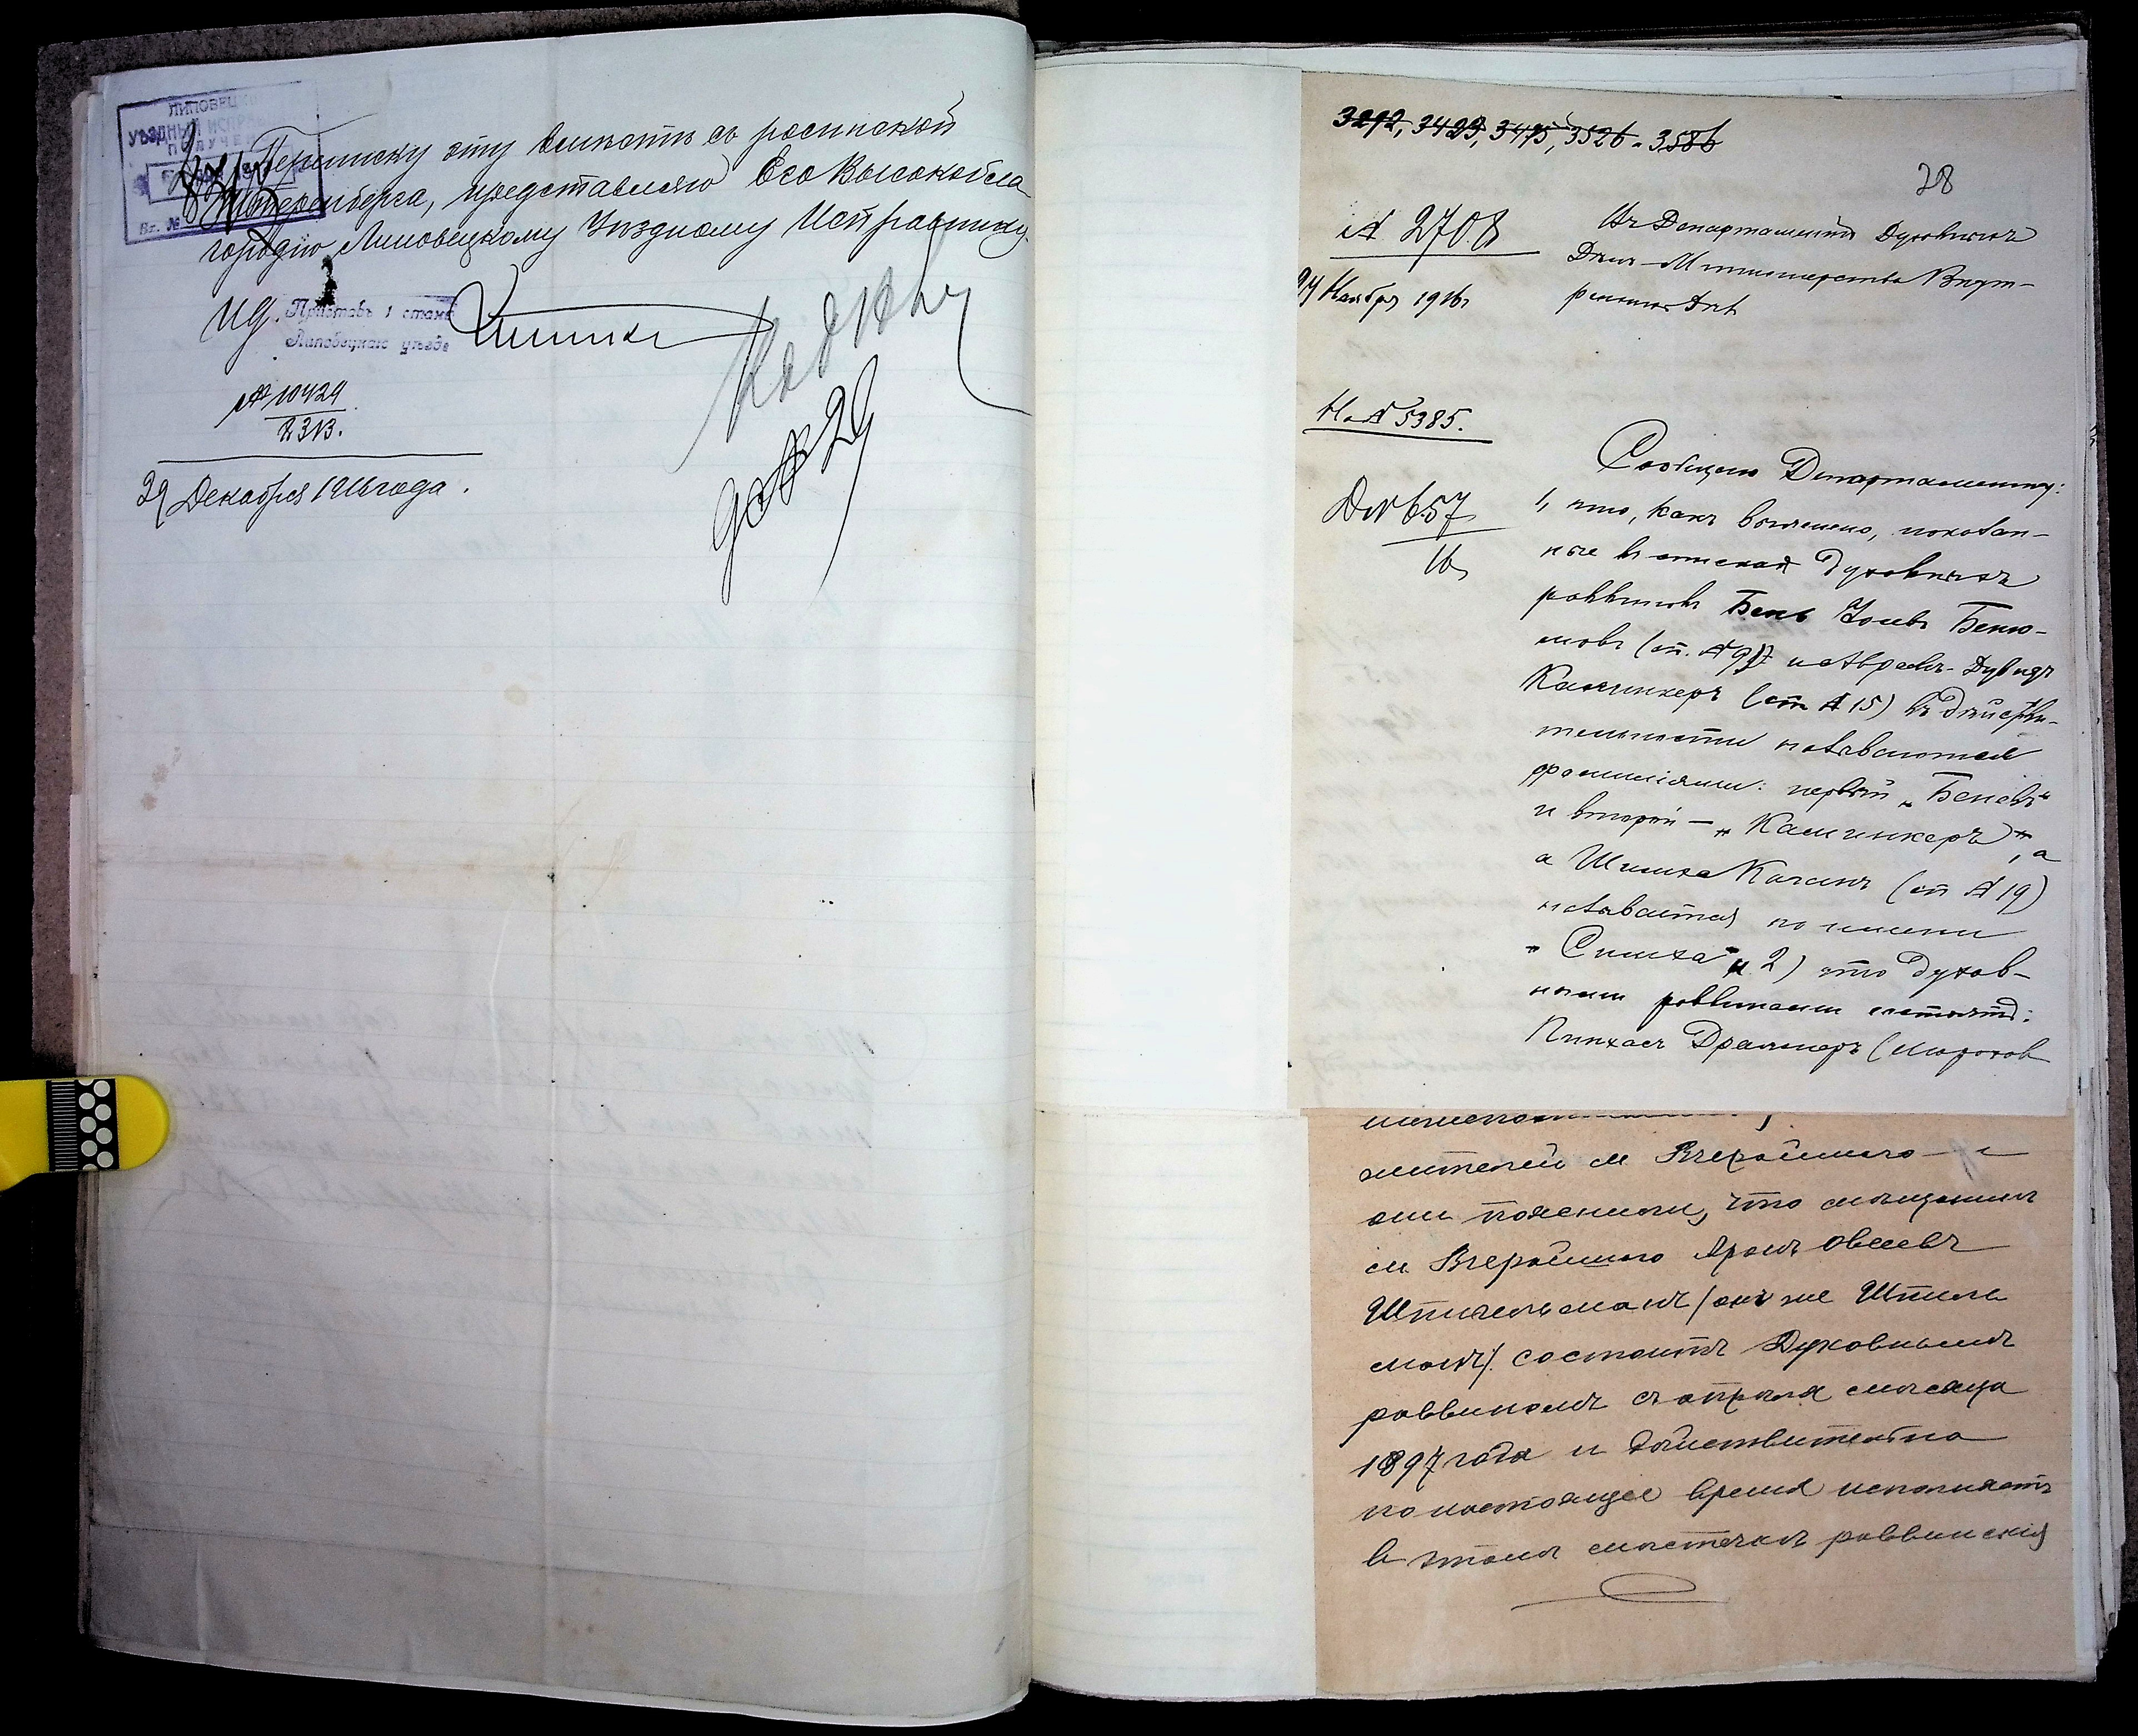 ЛИПОВЕЦК
УѢЗДНЫЙ ИСПР
ПОЛУЧЕ
Вх. №
Переписку эту вмѣстѣ съ роспиской
Штеренберга, представляю Его Высокобла-
городію Липовецкому Уѣздному Исправнику.
И.д. Приставъ 1 стана
Липовецкаго уѣзда
№ 10429
2313.
29 Декабря 1916 года.
3292, 3423, 3475, 3526, 3586
28
№ 2708
Въ Департаментъ Духовныхъ
Дѣлъ Министерства Внут-
24 Ноября 1916 г.
реннихъ Дѣлъ
На № 5385.
Сообщаю Департаменту:
Д № 657
16
1, что, какъ выяснено, показан-
ные въ спискахъ духовныхъ
раввиновъ Бень Іолевъ Беню-
мовъ (сп. № 97 и Авраамъ-Дувидъ
Калинкеръ (сп № 15) въ дѣйстви-
тельности называются
фамиліями: первый „Беневъ“
и второй — „Калинкеръ“, а
а Шимха Каганъ (сп № 19)
называется по имени
„Симха“ и 2) что духов-
ными раввинами состоятъ:
Пинхасъ Дралюеръ (Шорохов
жителей м. Вчерайшаго и
они пояснили, что мѣщанинъ
м. Вчерайшаго Аронъ Овшевъ
Шпигельманъ / онъ же Шпиль
манъ /. состоитъ Духовнымъ
раввиномъ съ апрѣля мѣсяца
1897 года и дѣйствительно
по настоящее время исполняетъ
въ этомъ мѣстечкѣ раввинскія